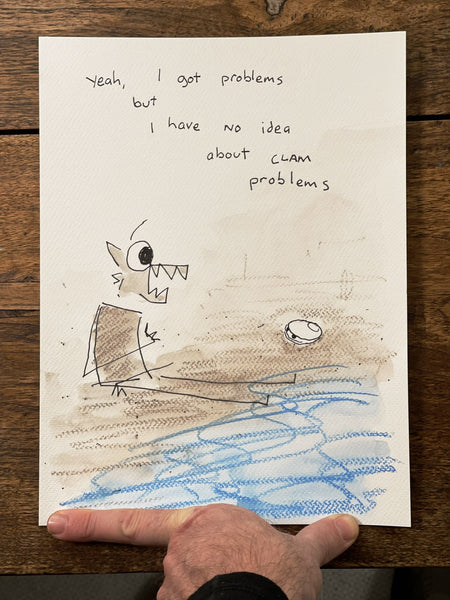 Yeah, I got problems
but
I have NO idea
about CLAM
problems